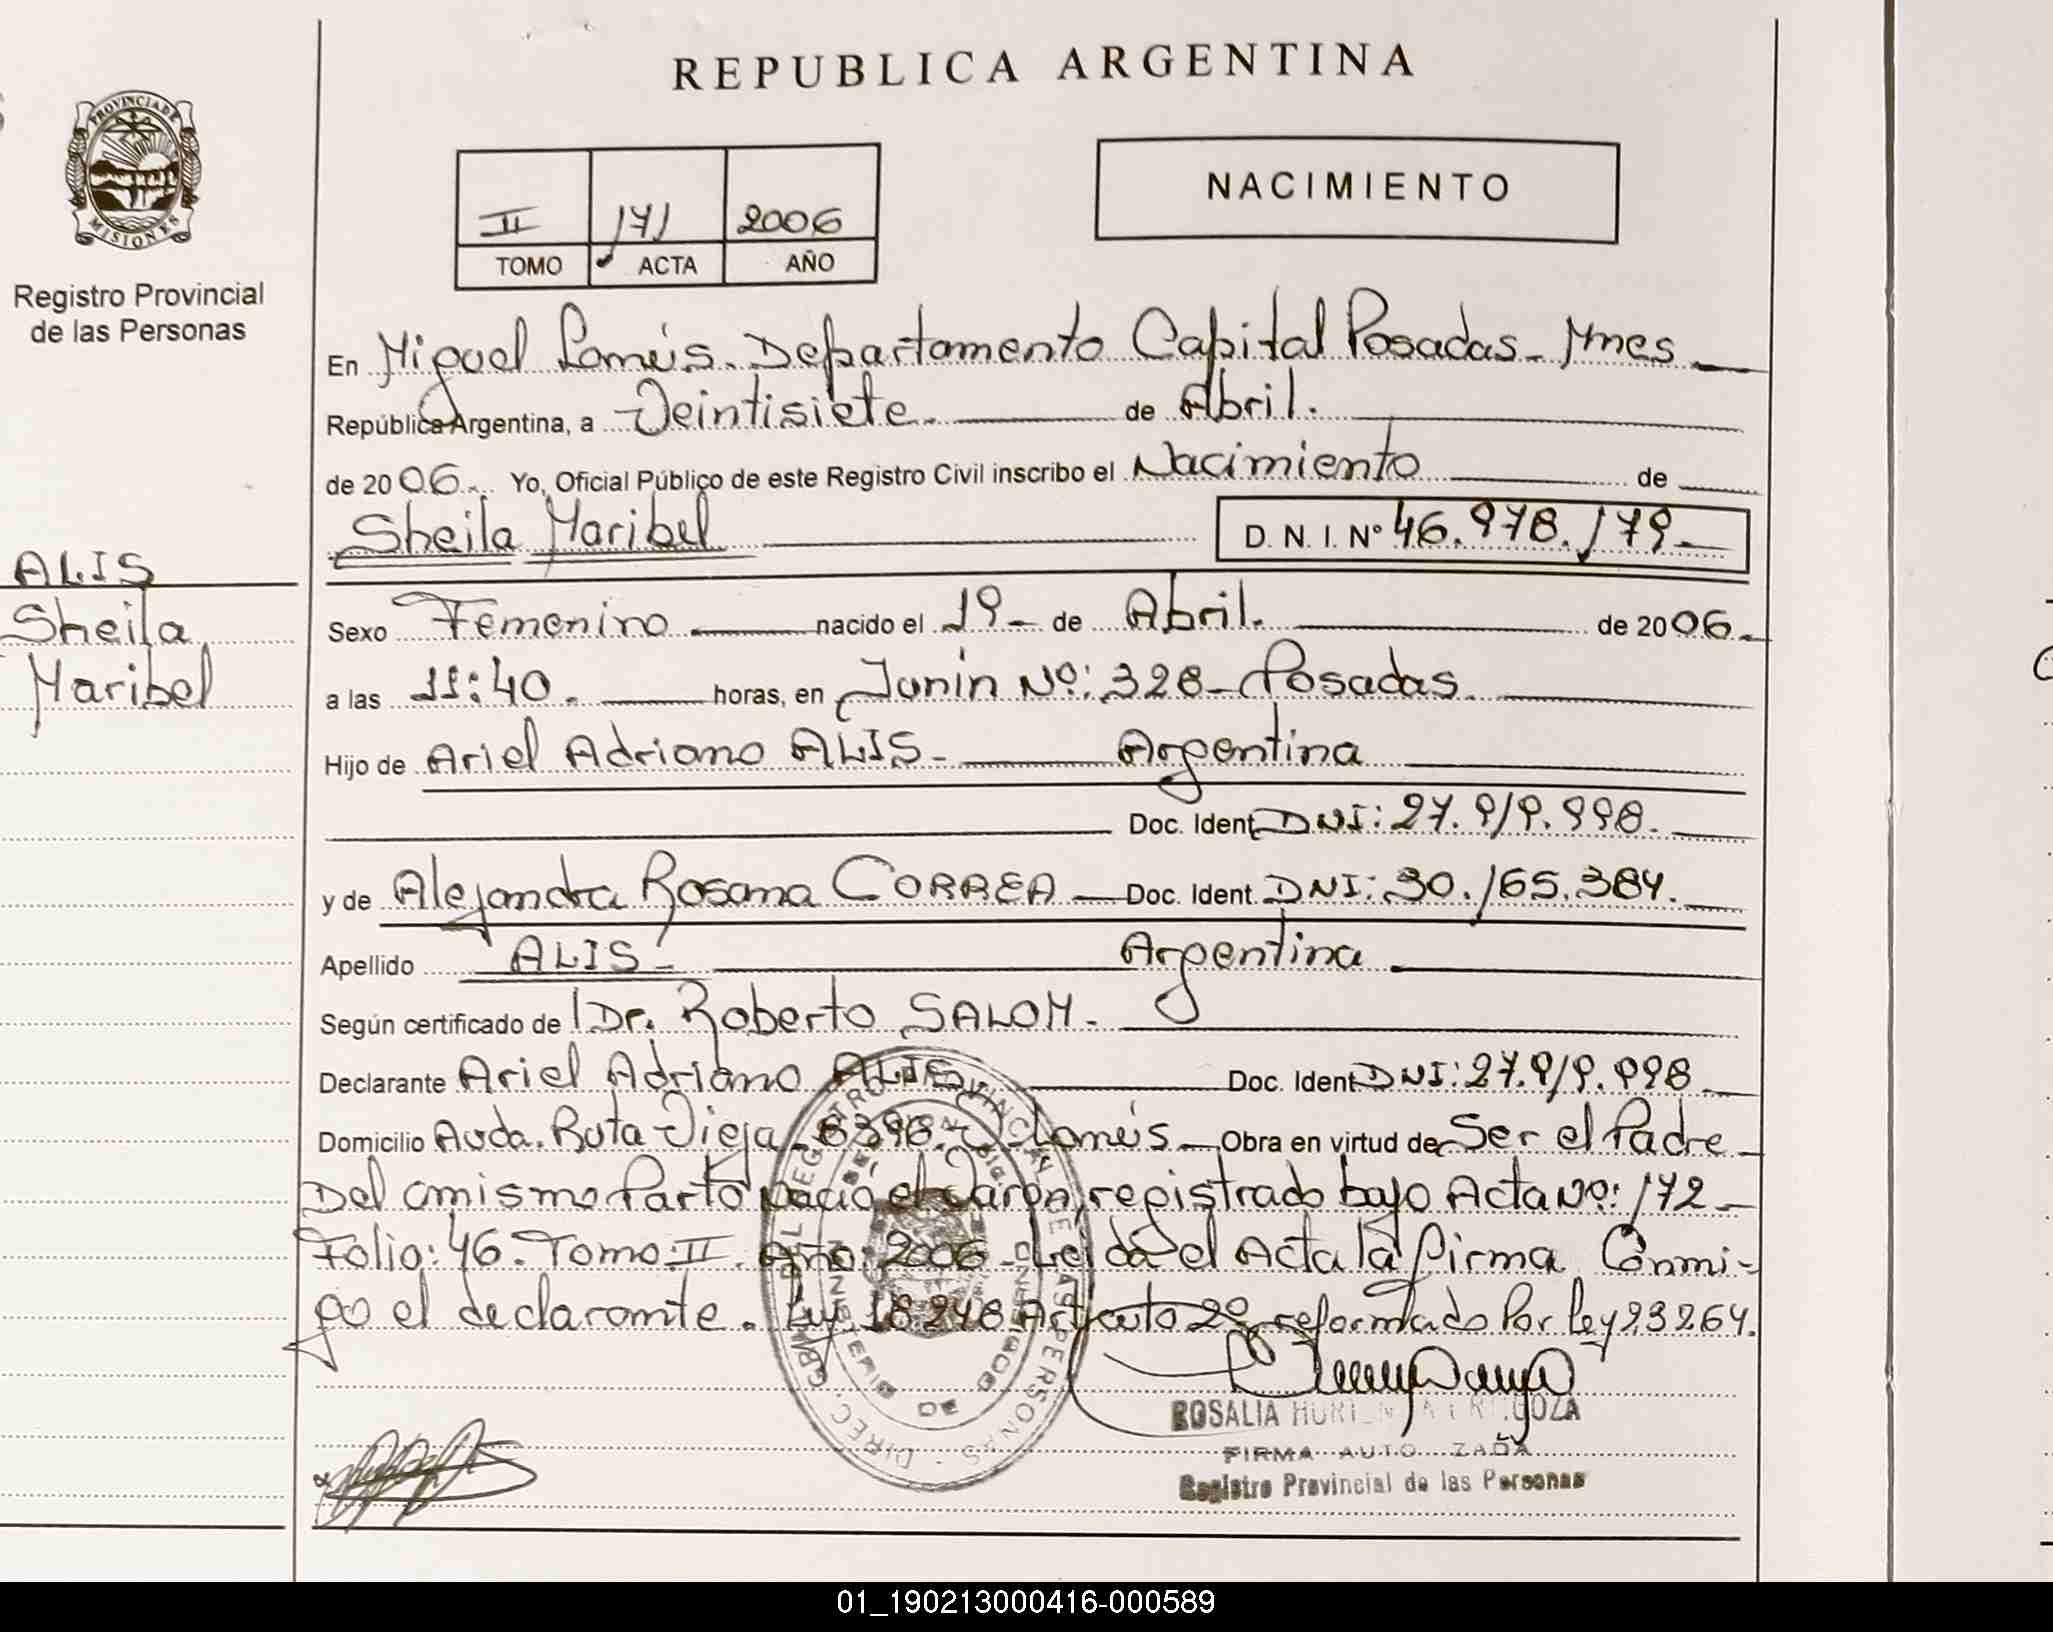 REPUBLICA ARGENTINA
PROVINCIA DE
MISIONES
Registro Provincial
de las Personas
NACIMIENTO
II 171 2006
TOMO ACTA AÑO
En Miguel Lanús. Departamento Capital Posadas - Mnes
República Argentina, a Veintisiete. de Abril.
de 2006. Yo, Oficial Público de este Registro Civil inscribo el Nacimiento de
Sheila Maribel D. N. I. Nº 46.978.179
ALIS
Sheila
Maribel
Sexo Femenino nacido el 19 de Abril. de 2006.
a las 11:40. horas, en Junín Nº: 328 - Posadas.
Hijo de Ariel Adriano ALIS - Argentina
Doc. Ident DNI: 27.919.998.
y de Alejandra Rosana CORREA Doc. Ident. DNI: 30.165.384.
Apellido ALIS - Argentina
Según certificado de Dr. Roberto SALOM.
Declarante Ariel Adriano ALIS Doc. Ident DNI: 27.919.998
Domicilio Avda. Ruta Vieja - 8398. Lanús. Obra en virtud de Ser el Padre
Del mismo Parto nació el Varón, registrado bajo Acta Nº: 172
Folio: 46. Tomo: II. Año: 2006 - Leída el Acta la firma Conmi-
go el declarante. Ley 18.248 Artículo 2º reformado Por Ley 23264.
ROSALIA
FIRMA AUTO ZADA
Registro Provincial de las Personas
01_190213000416-000589